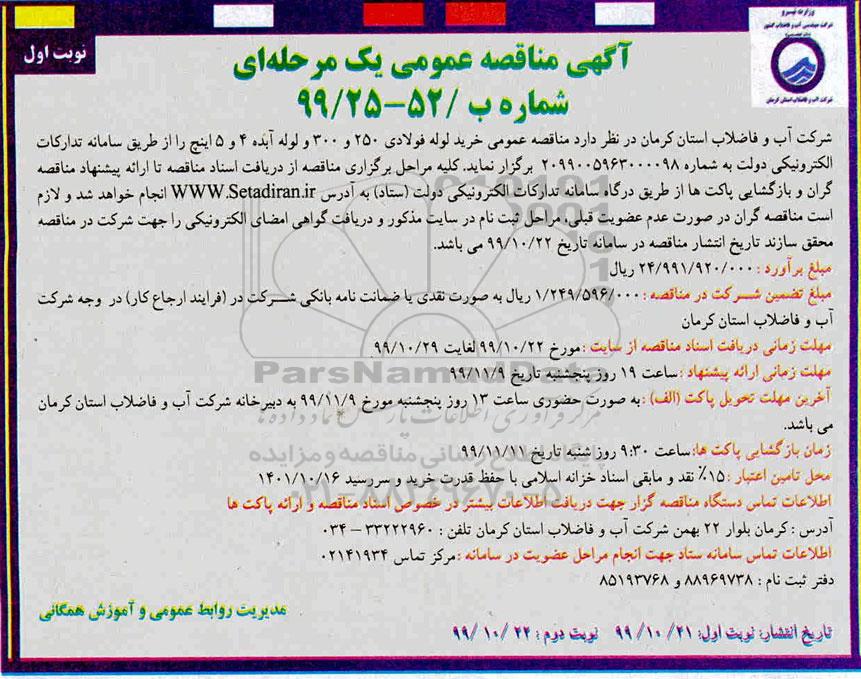 وزارت نیرو
شرکت مهندسی آب و فاضلاب کشور
شرکت آب و فاضلاب استان کرمان
نوبت اول
آگهی مناقصه عمومی یک مرحله‌ای
شماره ب /۵۲-۹۹/۲۵
شرکت آب و فاضلاب استان کرمان در نظر دارد مناقصه عمومی خرید لوله فولادی ۲۵۰ و ۳۰۰ و لوله آبده ۴ و ۵ اینچ را از طریق سامانه تدارکات
الکترونیکی دولت به شماره ۲۰۹۹۰۰۵۹۶۳۰۰۰۰۹۸ برگزار نماید. کلیه مراحل برگزاری مناقصه از دریافت اسناد مناقصه تا ارائه پیشنهاد مناقصه
گران و بازگشایی پاکت ها از طریق درگاه سامانه تدارکات الکترونیکی دولت (ستاد) به آدرس WWW.Setadiran.ir انجام خواهد شد و لازم
است مناقصه گران در صورت عدم عضویت قبلی، مراحل ثبت نام در سایت مذکور و دریافت گواهی امضای الکترونیکی را جهت شرکت در مناقصه
محقق سازند تاریخ انتشار مناقصه در سامانه تاریخ ۹۹/۱۰/۲۲ می باشد.
مبلغ برآورد : ۲۴/۹۹۱/۹۲۰/۰۰۰ ریال
مبلغ تضمین شرکت در مناقصه : ۱/۲۴۹/۵۹۶/۰۰۰ ریال به صورت نقدی یا ضمانت نامه بانکی شرکت در (فرایند ارجاع کار) در وجه شرکت
آب و فاضلاب استان کرمان
مهلت زمانی دریافت اسناد مناقصه از سایت : مورخ ۹۹/۱۰/۲۲ لغایت ۹۹/۱۰/۲۹
مهلت زمانی ارائه پیشنهاد : ساعت ۱۹ روز پنجشنبه تاریخ ۹۹/۱۱/۹
آخرین مهلت تحویل پاکت (الف) : به صورت حضوری ساعت ۱۳ روز پنجشنبه مورخ ۹۹/۱۱/۹ به دبیرخانه شرکت آب و فاضلاب استان کرمان
می باشد.
زمان بازگشایی پاکت ها: ساعت ۹:۳۰ روز شنبه تاریخ ۹۹/۱۱/۱۱
محل تامین اعتبار : ۱۵٪ نقد و مابقی اسناد خزانه اسلامی با حفظ قدرت خرید و سررسید ۱۴۰۱/۱۰/۱۶
اطلاعات تماس دستگاه مناقصه گزار جهت دریافت اطلاعات بیشتر در خصوص اسناد مناقصه و ارائه پاکت ها
آدرس : کرمان بلوار ۲۲ بهمن شرکت آب و فاضلاب استان کرمان تلفن : ۳۳۲۲۲۹۶۰ - ۰۳۴
اطلاعات تماس سامانه ستاد جهت انجام مراحل عضویت در سامانه : مرکز تماس ۰۲۱۴۱۹۳۴
دفتر ثبت نام : ۸۸۹۶۹۷۳۸ و ۸۵۱۹۳۷۶۸
مدیریت روابط عمومی و آموزش همگانی
تاریخ انتشار: نوبت اول: ۹۹/۱۰/۲۱ نوبت دوم : ۹۹/۱۰/۲۲
ParsNamadData
مرکز فرآوری اطلاعات پارس نماد داده ها
پایگاه اطلاع رسانی مناقصه و مزایده